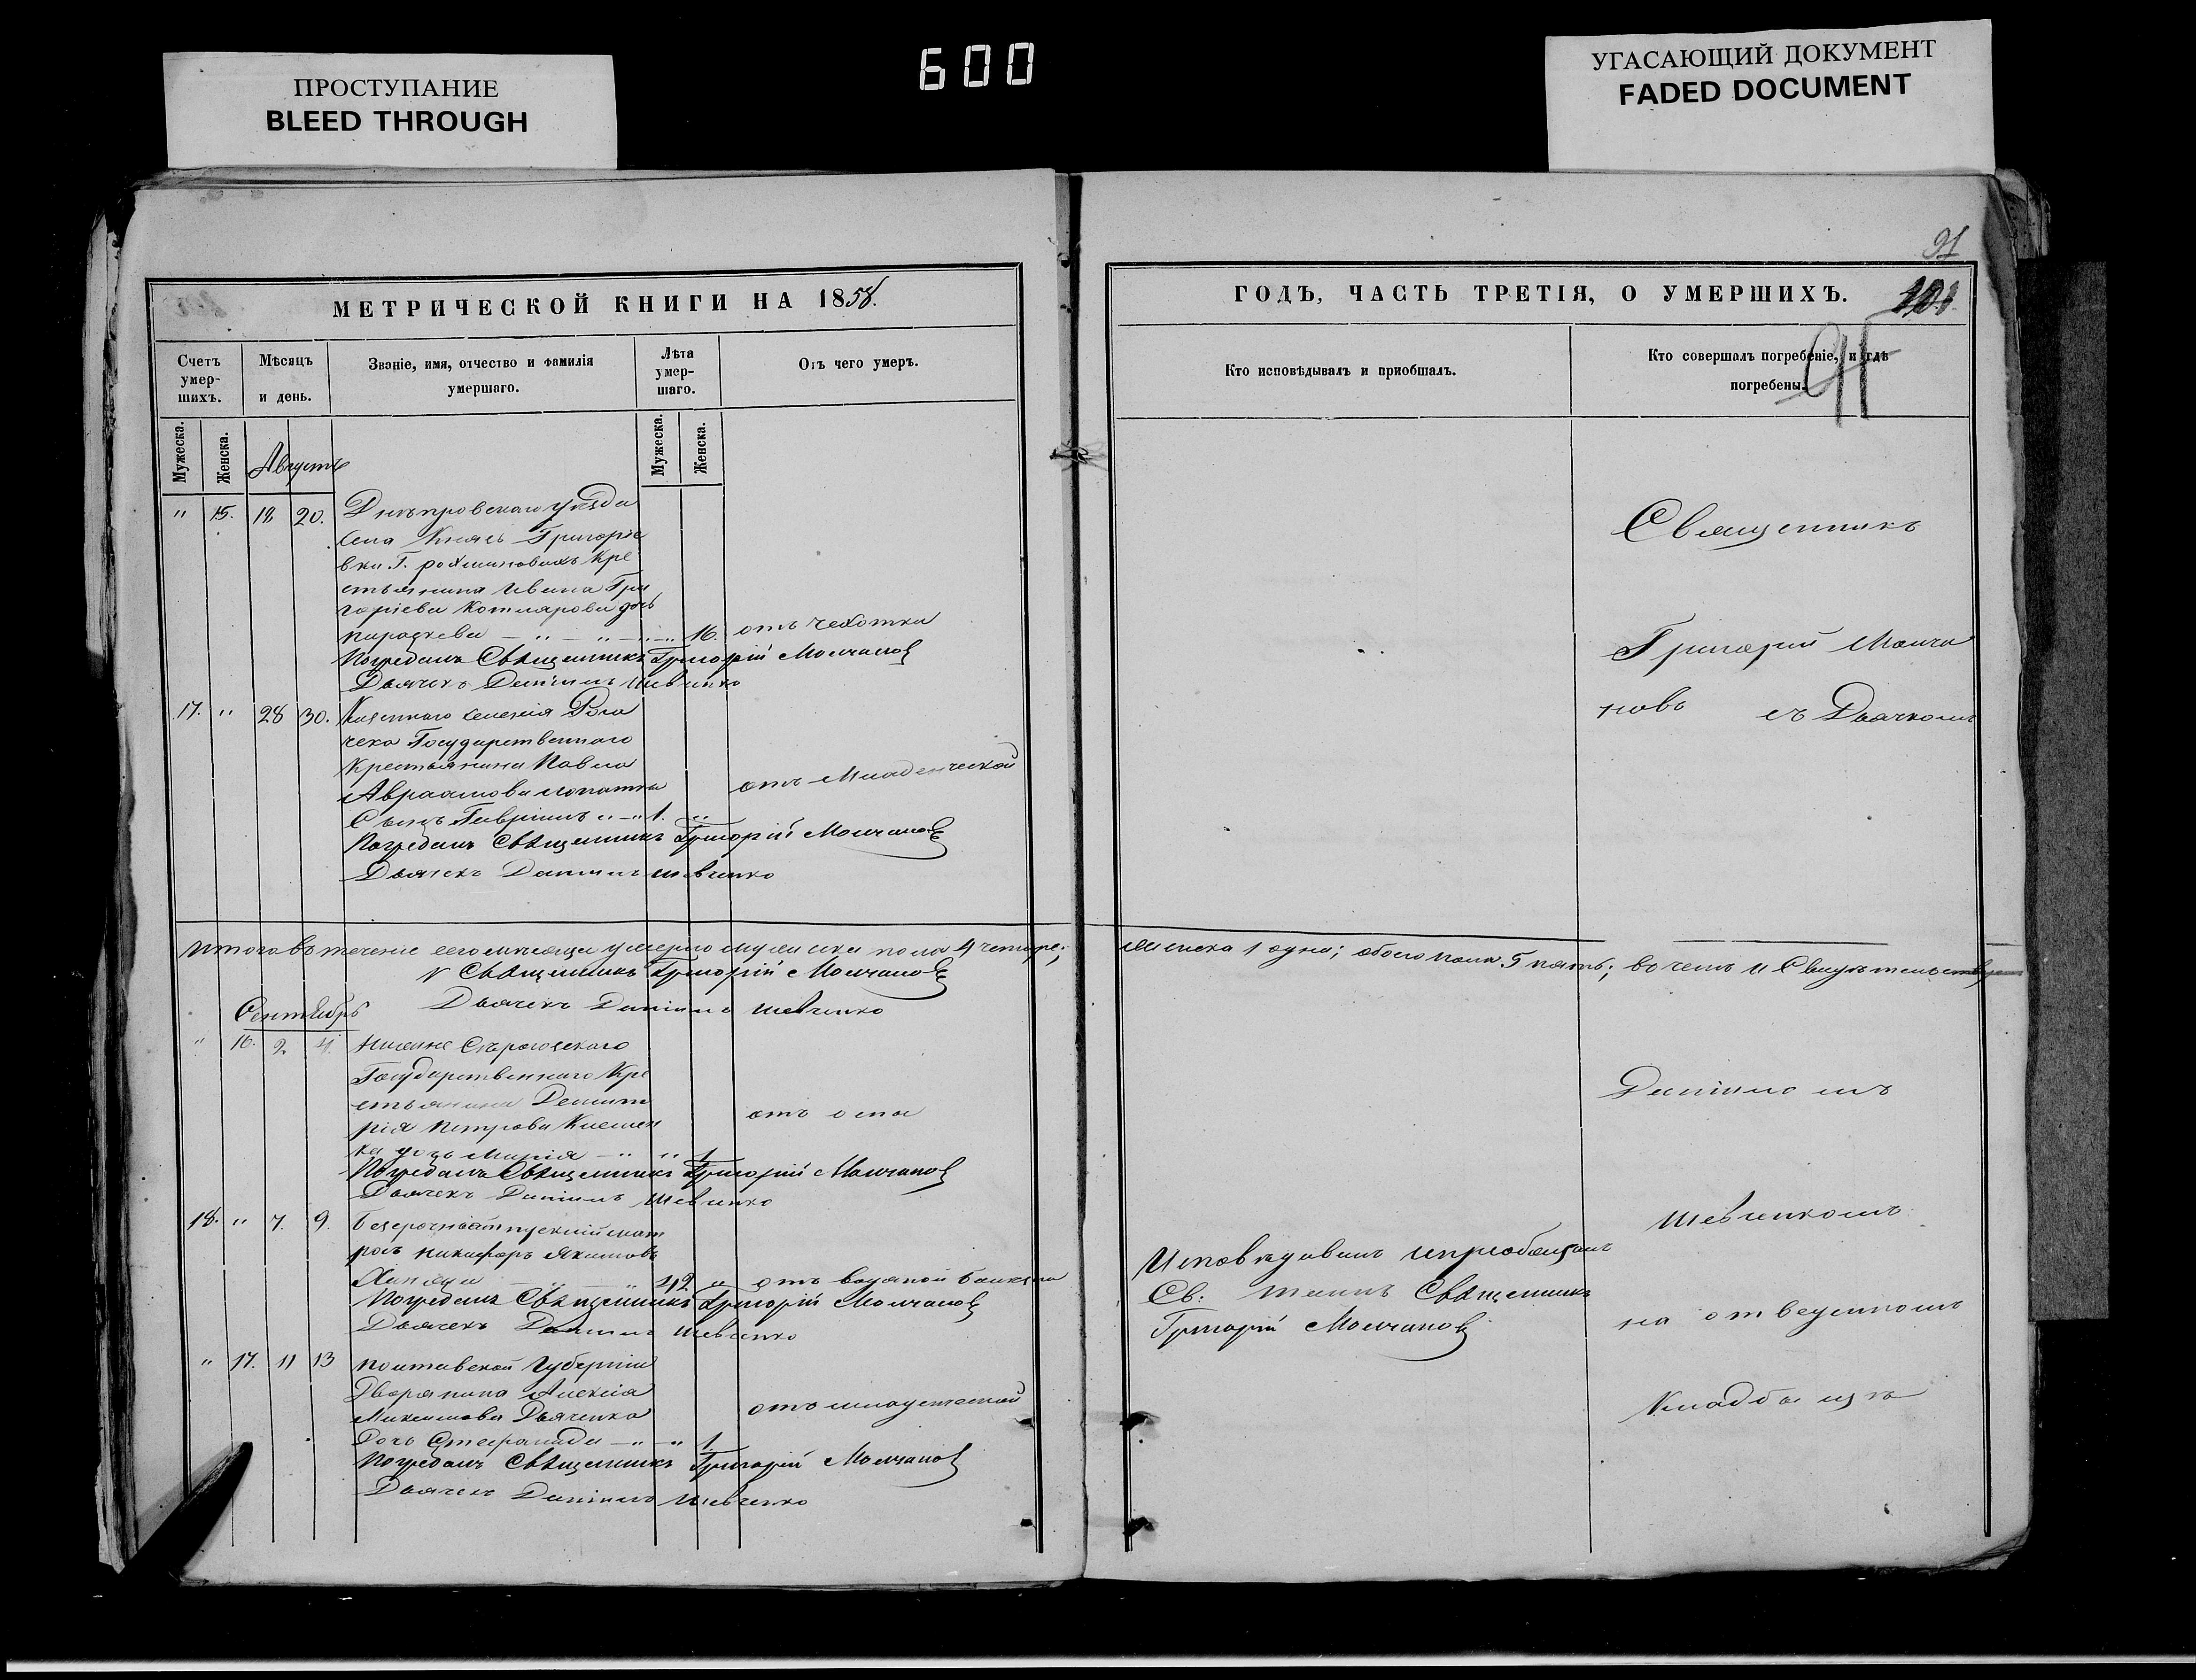 ПРОСТУПАНИЕ
BLEED THROUGH
600
УГАСАЮЩИЙ ДОКУМЕНТ
FADED DOCUMENT
МЕТРИЧЕСКОЙ КНИГИ НА 1858.
Счетъ умер-шихъ.
Мѣсяцъ и день.
Званіе, имя, отчество и фамилія умершаго.
Лѣта умер-шаго.
Отъ чего умеръ.
Мужеска.
Женска.
Мужеска.
Женска.
Августъ
" 15. 18 20. Днѣпровскаго уѣзда
села Князь Григорiе
вки Г. Кре
стьянина Ивана Гри
горіева Котлярова дочь
Параскева — " — " — " — 16. отъ чехотки
Погребалъ Священникъ Григорій Молчановъ
Дьячекъ Даніилъ Шевченко
17. " 28 30. Казеннаго селенія Рога
чека Государственнаго
Крестьянина Павла
Авраамова Лопатка отъ Младенческой
Сынъ Гавріилъ " — " 1. "
Погребалъ Священникъ Григорій Молчановъ
Дьячекъ Даніилъ Шевченко
Итого въ теченіе сего мѣсяца умерло мужеска пола 4 четыре;
Священникъ Григорій Молчановъ
Дьячекъ Даніилъ Шевченко
Сентябрь
" 16. 2. 4. Нижне Сѣрогозскаго
Государственнаго Кре
стьянина Димит
рія Петрова отъ оспы
ка дочь Марія — " " 1.
Погребалъ Священникъ Григорій Молчановъ
Дьячекъ Даніилъ Шевченко
18. " 7. 9. Безсрочноотпускній мат
росъ Никифоръ Якимовъ
42 " отъ водяной
Погребалъ Священникъ Григорій Молчановъ
Дьячекъ Даніилъ Шевченко
" 17. 11 13 Полтавской Губерніи
Дворянина Алексія
Максимова Дьяченка отъ младенческой
Дочь Стефанида — " — " 1.
Погребалъ Священникъ Григорій Молчановъ
Дьячекъ Даніилъ Шевченко
91
ГОДЪ, ЧАСТЬ ТРЕТІЯ, О УМЕРШИХЪ.
91
Кто исповѣдывалъ и пріобщалъ.
Кто совершалъ погребеніе, и гдѣ погребены.
Священникъ
Григорій Молча
новъ съ Дьячкомъ
женска 1 одна; обоего пола 5 пять; въ чемъ и Свидѣтельствуемъ
Даніиломъ
Шевченкомъ
Исповѣдывалъ и пріобщалъ
Св. Таинъ Священникъ
Григорій Молчановъ
на отведенномъ
Кладбищѣ